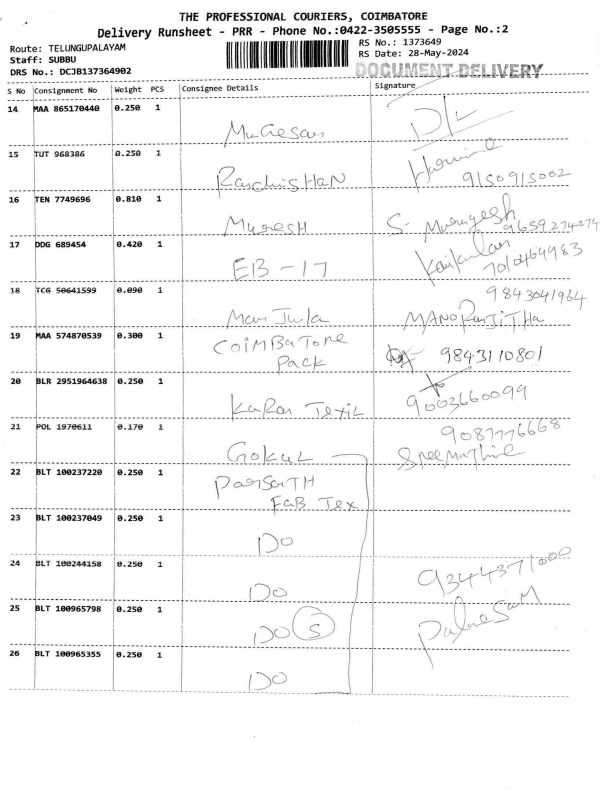 THE PROFESSIONAL COURIERS, COIMBATORE
Delivery Runsheet - PRR - Phone No.:0422-3505555 - Page No.:2
Route: TELUNGUPALAYAM
Staff: SUBBU
DRS No.: DCJB137364902
RS No.: 1373649
RS Date: 28-May-2024
DOCUMENT DELIVERY
S No Consignment No Weight PCS Consignee Details Signature
14 MAA 865170440 0.250 1
MuGesan D/L
15 TUT 968386 0.250 1
9150915002
16 TEN 7749696 0.810 1
MuresH S. Murugesh
9659274274
17 DDG 689454 0.420 1
EB-17
7010464983
18 TCG 50641599 0.090 1
9843041964
ManJula MANORanJiTHa
19 MAA 574870539 0.300 1
COiMBaTore
Pack 9843110801
20 BLR 2951964638 0.250 1
KaRan TexiL 9003660099
21 POL 1970611 0.170 1
9087776668
GokuL
22 BLT 100237220 0.250 1
ParsanTH
FaB Tex
23 BLT 100237049 0.250 1
DO
24 BLT 100244158 0.250 1
DO 9344371000
25 BLT 100965798 0.250 1
DO 5
26 BLT 100965355 0.250 1
DO